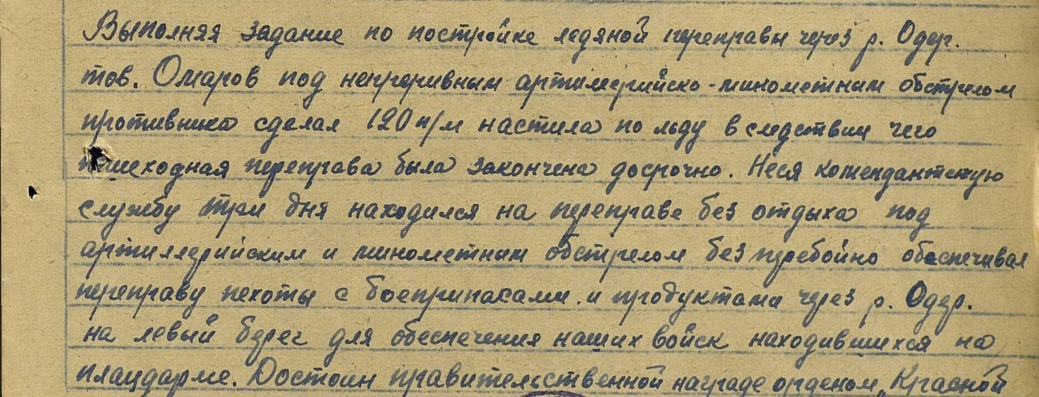 Выполняя задание по постройке ледяной переправы через р. Одер.
тов. Омаров под непрерывным артиллерийско-минометным обстрелом
противника сделал 120 п/м настила по льду в следствии чего
пешеходная переправа была закончена досрочно. Неся комендантскую
службу три дня находился на переправе без отдыха под
артиллерийским и минометным обстрелом без перебойно обеспечивал
переправу пехоты с боеприпасами и продуктами через р. Одер.
на левый берег для обеспечения наших войск находившихся на
плацдарме. Достоин правительственной награде орденом „Красной